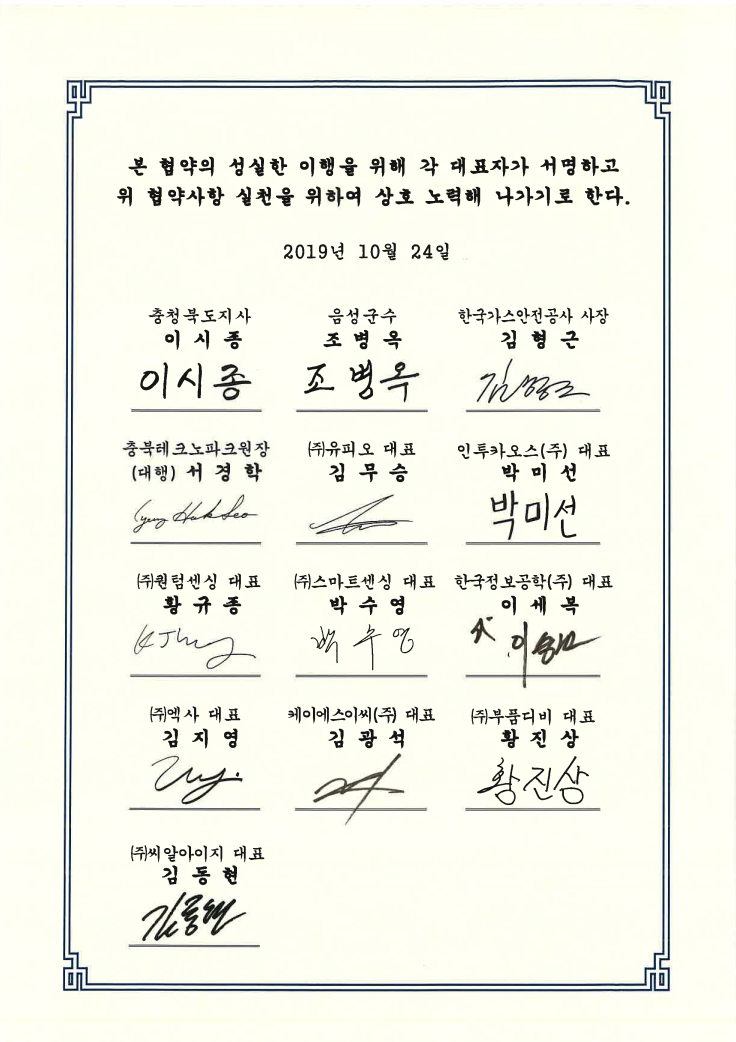 본 협약의 성실한 이행을 위해 각 대표자가 서명하고
위 협약사항 실천을 위하여 상호 노력해 나가기로 한다.
2019년 10월 24일
충청북도지사
이 시 종
이시종
음성군수
조 병 옥
조병옥
한국가스안전공사 사장
김 형 근
충북테크노파크원장
(대행) 서 경 학
Kyung Hak Seo
㈜유피오 대표
김 무 승
인투카오스(주) 대표
박 미 선
박미선
㈜원텀센싱 대표
황 규 종
㈜스마트센싱 대표
박 수 영
박수영
한국정보공학(주) 대표
이 세 복
㈜엑사 대표
김 지 영
케이에스이씨(주) 대표
김 광 석
㈜부품디비 대표
황 진 상
황진상
㈜씨알아이지 대표
김 동 현
김동현